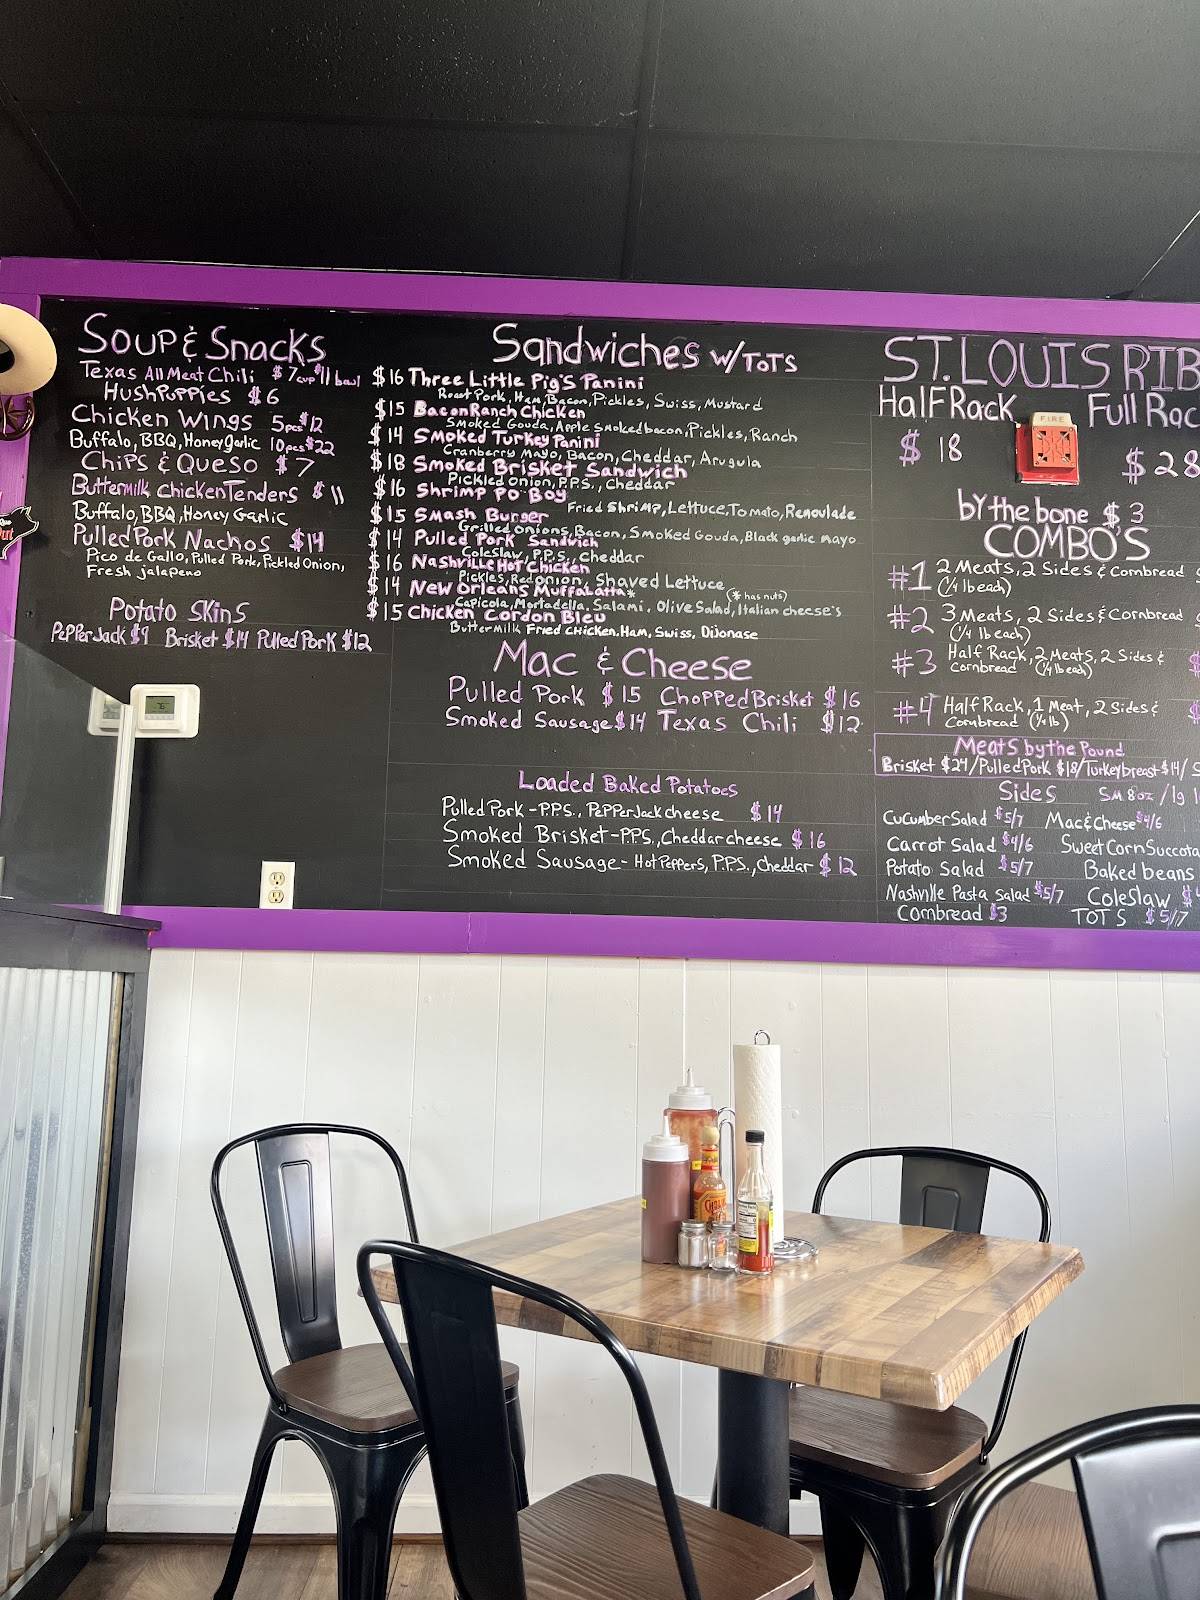 Soup & Snacks
Texas All Meat Chili $7 cup $11 bowl
HushPuppies $6
Chicken Wings 5pcs $12
Buffalo, BBQ, Honey garlic 10pcs $22
Chips & Queso $7
Buttermilk Chicken Tenders $11
Buffalo, BBQ, Honey Garlic
Pulled Pork Nachos $14
Pico de Gallo, Pulled Pork, Pickled Onion,
Fresh jalapeno
Potato Skins
Pepper Jack $9 Brisket $14 Pulled Pork $12
Sandwiches w/ToTs
$16 Three Little Pig's Panini
Roast Pork, Ham, Bacon, Pickles, Swiss, Mustard
$15 Bacon Ranch Chicken
Smoked Gouda, Apple Smoked bacon, Pickles, Ranch
$14 Smoked Turkey Panini
Cranberry Mayo, Bacon, Cheddar, Arugula
$18 Smoked Brisket Sandwich
Pickled Onion, P.P.S., Cheddar
$16 Shrimp Po Boy
Fried Shrimp, Lettuce, Tomato, Remoulade
$15 Smash Burger
Grilled Onions, Bacon, Smoked Gouda, Black garlic mayo
$14 Pulled Pork Sandwich
Coleslaw, P.P.S., Cheddar
$16 Nashville Hot Chicken
Pickles, Red onion, Shaved Lettuce
$14 New Orleans Muffalatta* (* has nuts)
Capicola, Mortadella, Salami, Olive Salad, Italian cheese's
$15 Chicken Cordon Bleu
Buttermilk Fried Chicken, Ham, Swiss, Dijonase
Mac & Cheese
Pulled Pork $15 Chopped Brisket $16
Smoked Sausage $14 Texas Chili $12
Loaded Baked Potatoes
Pulled Pork - P.P.S., Pepper Jack cheese $14
Smoked Brisket - P.P.S., Cheddar cheese $16
Smoked Sausage - Hot Peppers, P.P.S., Cheddar $12
ST. LOUIS RIB
Half Rack Full Rac
$18 $28
FIRE
by the bone $3
COMBO'S
#1 2 Meats, 2 Sides & Cornbread
(1/4 lb each)
#2 3 Meats, 2 Sides & Cornbread
(1/4 lb each)
#3 Half Rack, 2 Meats, 2 Sides & $
Cornbread (1/4 lb each)
#4 Half Rack, 1 Meat, 2 Sides & $
Cornbread (1/4 lb)
Meats by the Pound
Brisket $24/Pulled Pork $18/Turkey breast $14/ S
Sides SM 8oz / lg 1
Cucumber Salad $5/7 Mac & Cheese $4/6
Carrot Salad $4/6 Sweet Corn Succota
Potato Salad $5/7 Baked beans
Nashville Pasta Salad $5/7 Coleslaw $4
Cornbread $3 TOTS $5/7